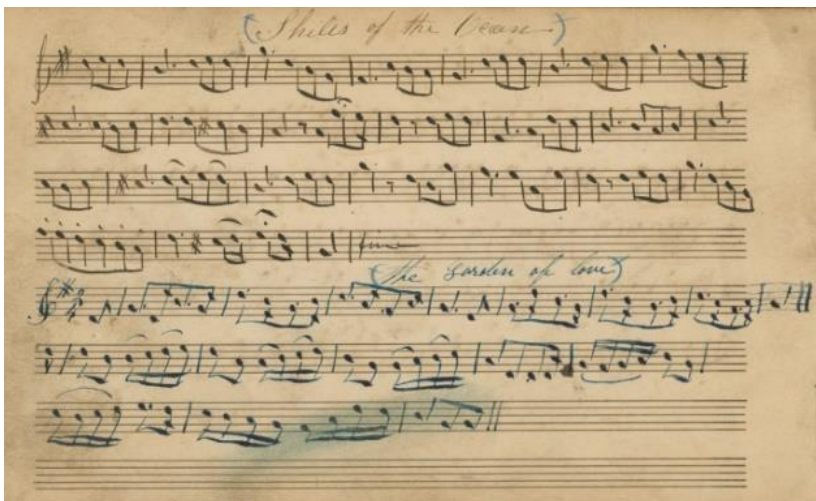 (Shiles of the Ocean)
fine
(the Garden of love)